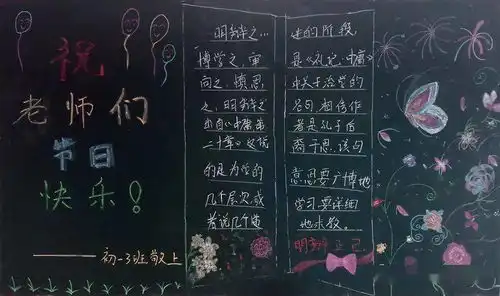 祝
老师们
节日
快乐！
——初一3班敬上
明辨之…
博学之，审
问之，慎思
之，明辨之
出自《中庸第
二十章》这说
的是为学的
几个层次，或
者说几个递
进的阶段
是《礼记·中庸》
中关于治学的
名句，相传作
者是孔子后
裔子思，该句
意思要广博地
学习，要详细
地求教。
明辨正己